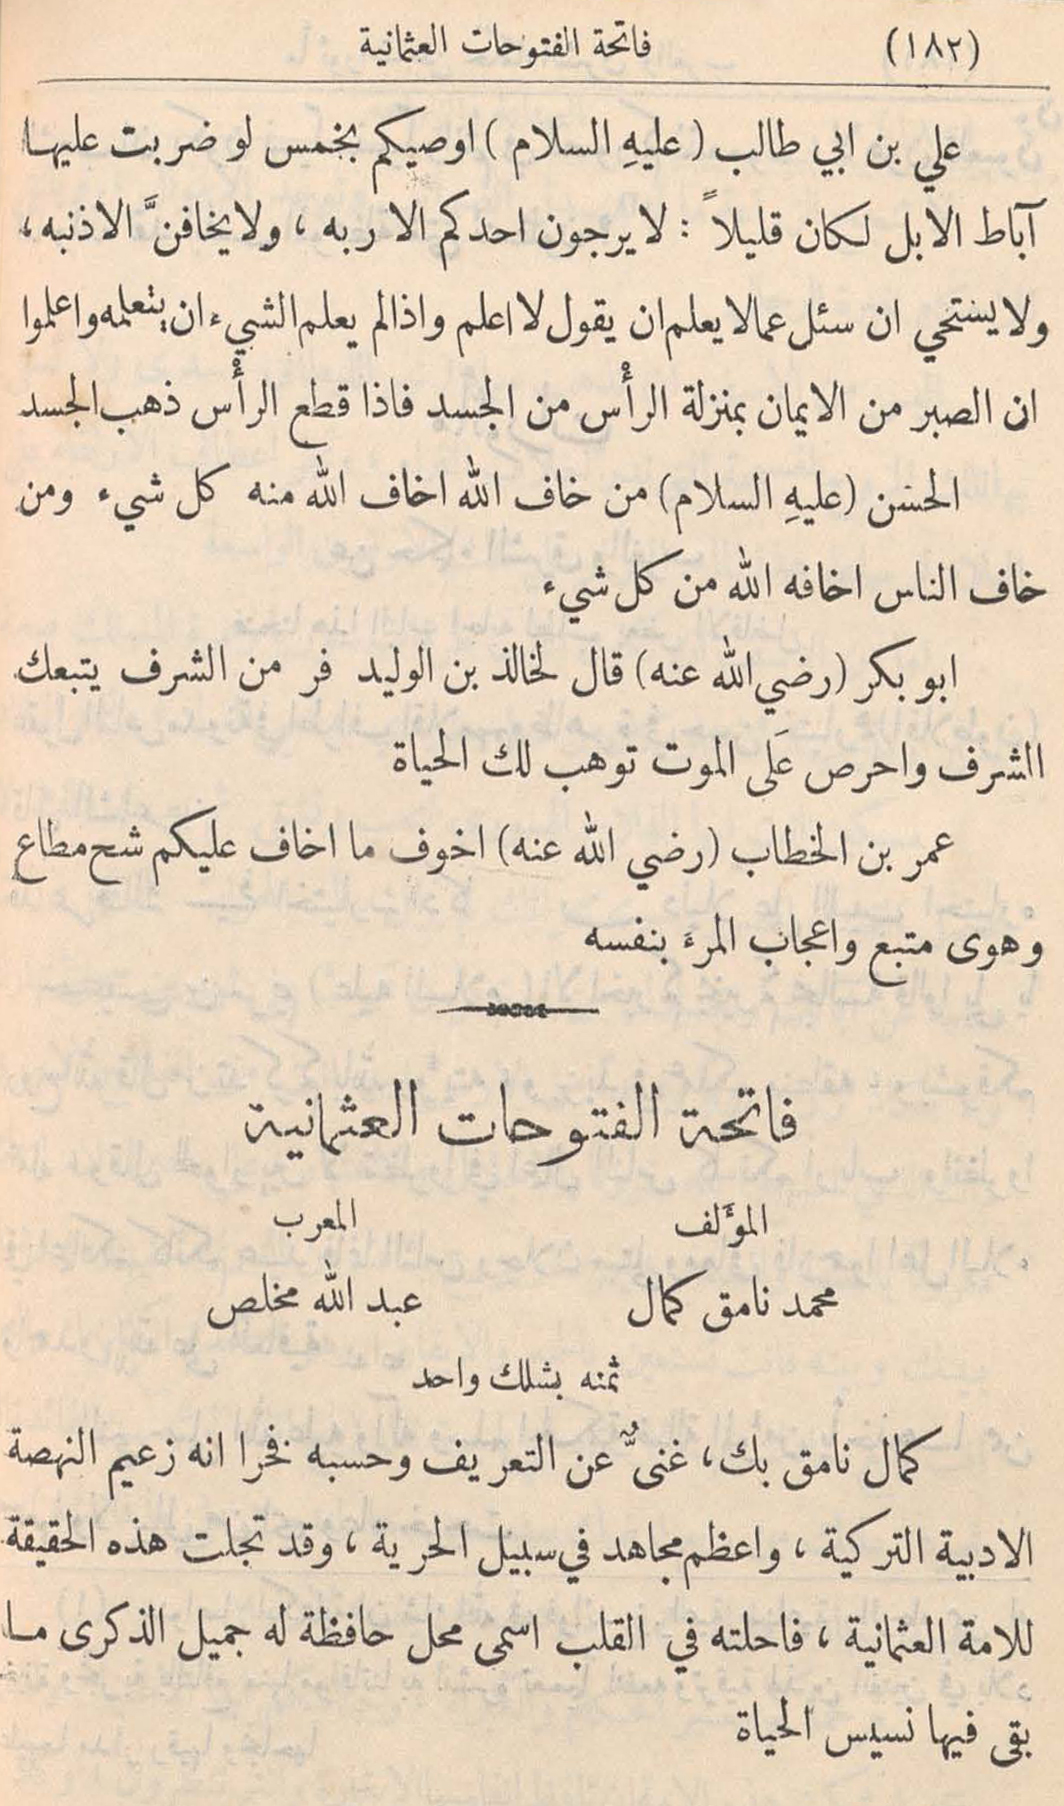 (١٨٢) فاتحة الفتوحات العثمانية
علي بن ابي طالب ( عليهِ السلام ) اوصيكم بخمس لو ضربت عليها
آباط الابل لكان قليلاً : لا يرجون احدكم الا ربه ، ولا يخافنَّ الا ذنبه ،
ولا يستحي ان سئل عما لا يعلم ان يقول لا اعلم واذا لم يعلم الشيء ان يتعلمه واعلموا
ان الصبر من الايمان بمنزلة الرأْس من الجسد فاذا قطع الرأْس ذهب الجسد
الحسن (عليهِ السلام) من خاف الله اخاف الله منه كل شيء ومن
خاف الناس اخافه الله من كل شيء
ابو بكر (رضي الله عنه) قال لخالد بن الوليد فر من الشرف يتبعك
الشرف واحرص عَلى الموت توهب لك الحياة
عمر بن الخطاب (رضي الله عنه) اخوف ما اخاف عليكم شح مطاع
وهوى متبع واعجاب المرءَ بنفسه
فاتحة الفتوحات العثمانية
المؤَلف المعرب
محمد نامق كمال عبد الله مخلص
ثمنه بشلك واحد
كمال نامق بك ، غنىٌّ عن التعريف وحسبه فخرا انه زعيم النهصة
الادبية التركية ، واعظم مجاهد في سبيل الحرية ، وقد تجلت هذه الحقيقة
للامة العثمانية ، فاحلته في القلب اسمى محل حافظة له جميل الذكرى ما
بقى فيها نسيس الحياة